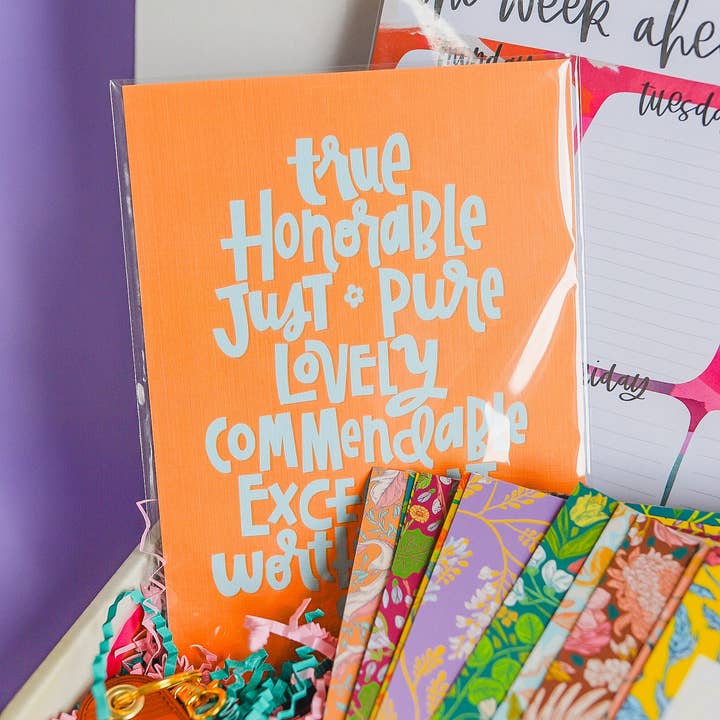 the week ahe
tuesda
true
Honorable
Just pure
LOVELY
commendable
EXCE
wort
riday